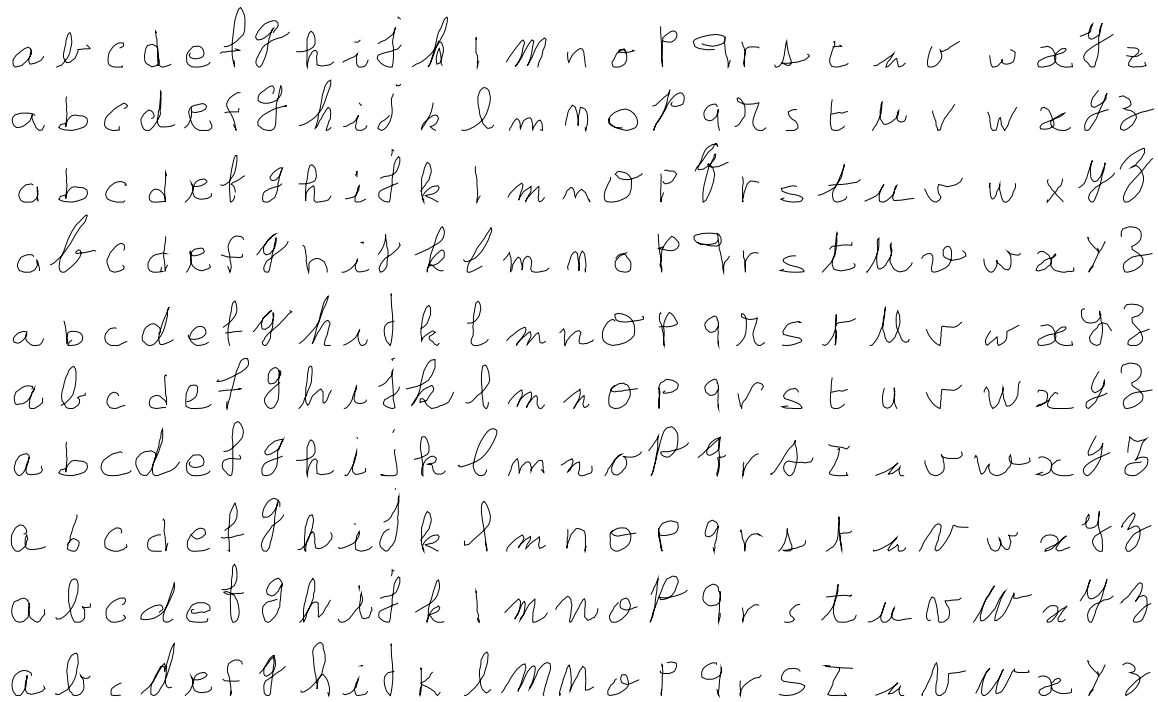 a b c d e f g h i j k l m n o p q r s t u v w x y z
a b c d e f g h i j k l m n o p q r s t u v w x y z
a b c d e f g h i j k l m n o p q r s t u v w x y z
a b c d e f g h i j k l m n o p q r s t u v w x y z
a b c d e f g h i j k l m n o p q r s t u v w x y z
a b c d e f g h i j k l m n o p q r s t u v w x y z
a b c d e f g h i j k l m n o p q r s t u v w x y z
a b c d e f g h i j k l m n o p q r s t u v w x y z
a b c d e f g h i j k l m n o p q r s t u v w x y z
a b c d e f g h i j k l m n o p q r s t u v w x y z